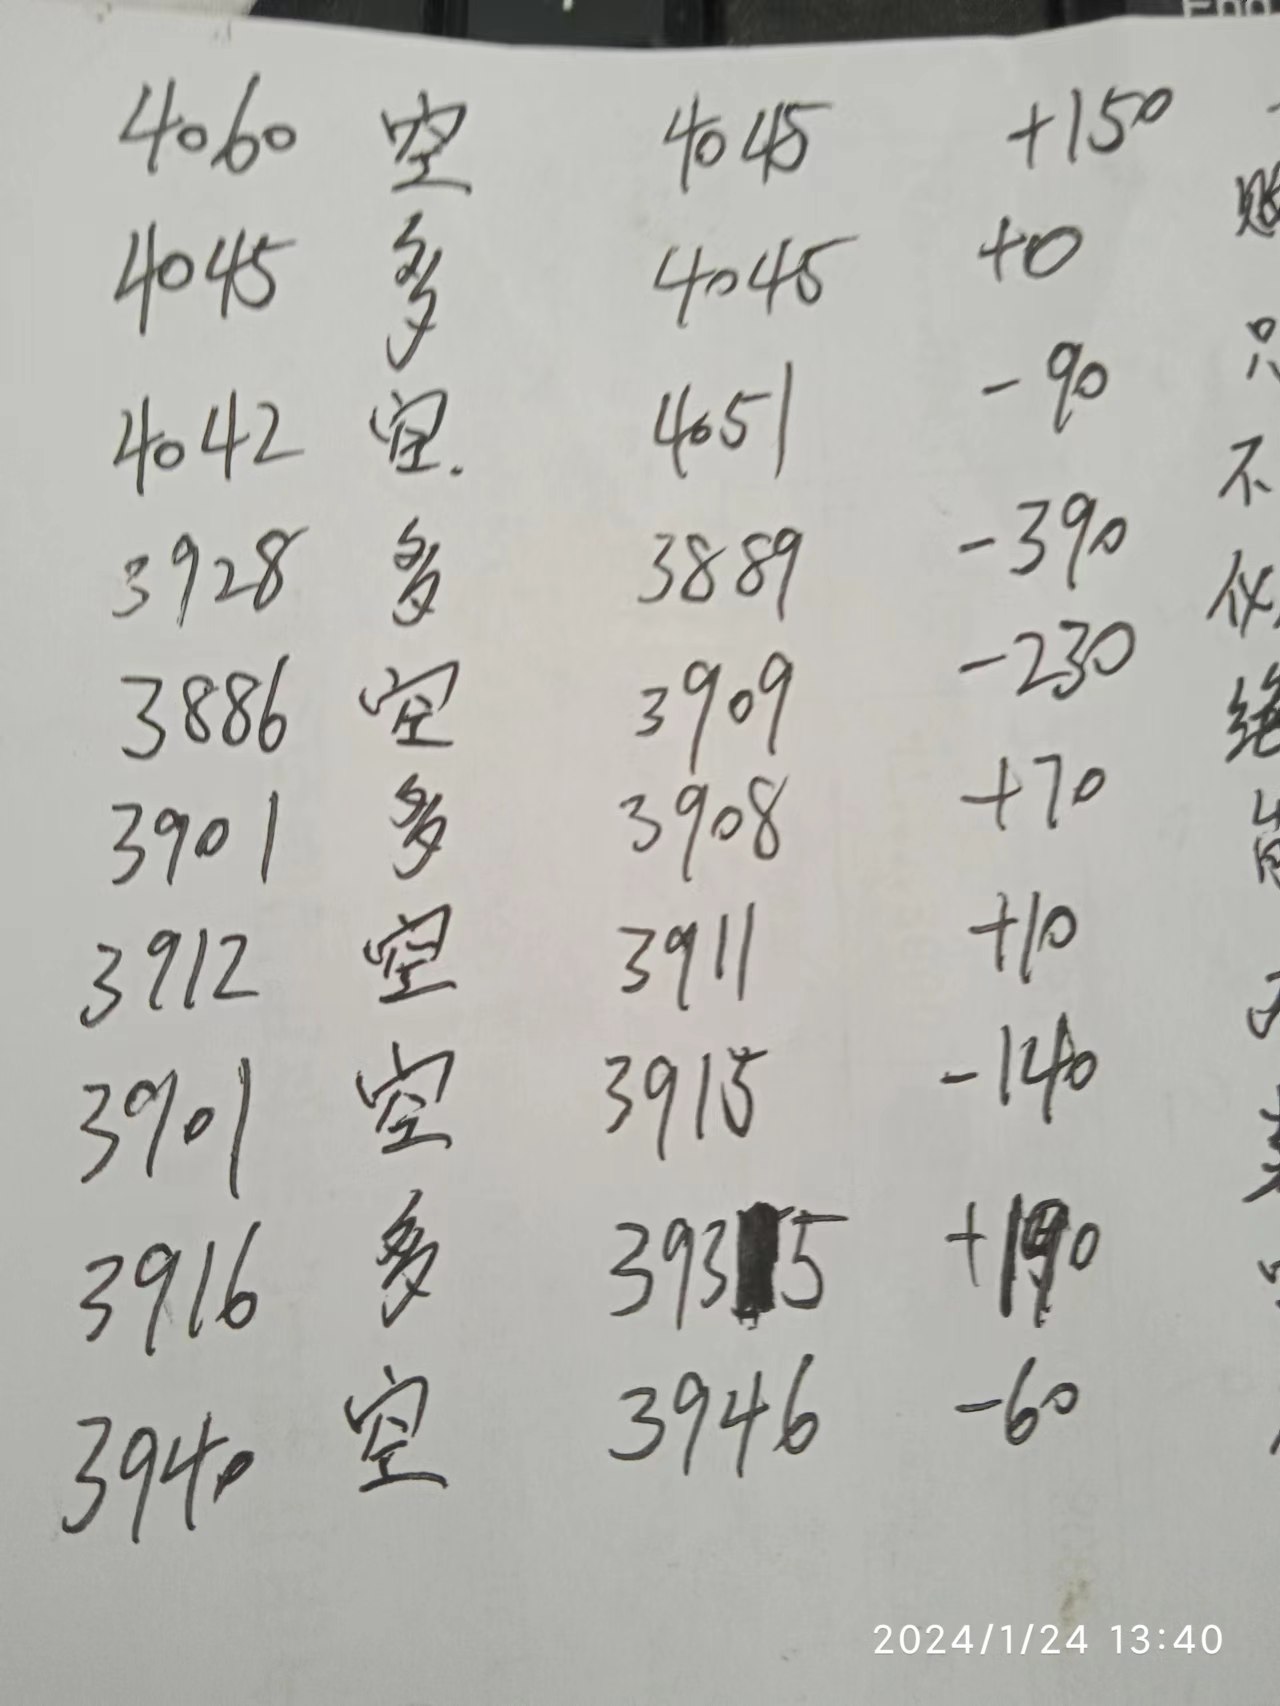 4060 空 4045 +150
4045 多 4045 +0
4042 空. 4051 -90
3928 多 3889 -390
3886 空 3909 -230
3901 多 3908 +70
3912 空 3911 +10
3901 空 3915 -140
3916 多 3935 +190
3940 空 3946 -60
只
不
2024/1/24 13:40